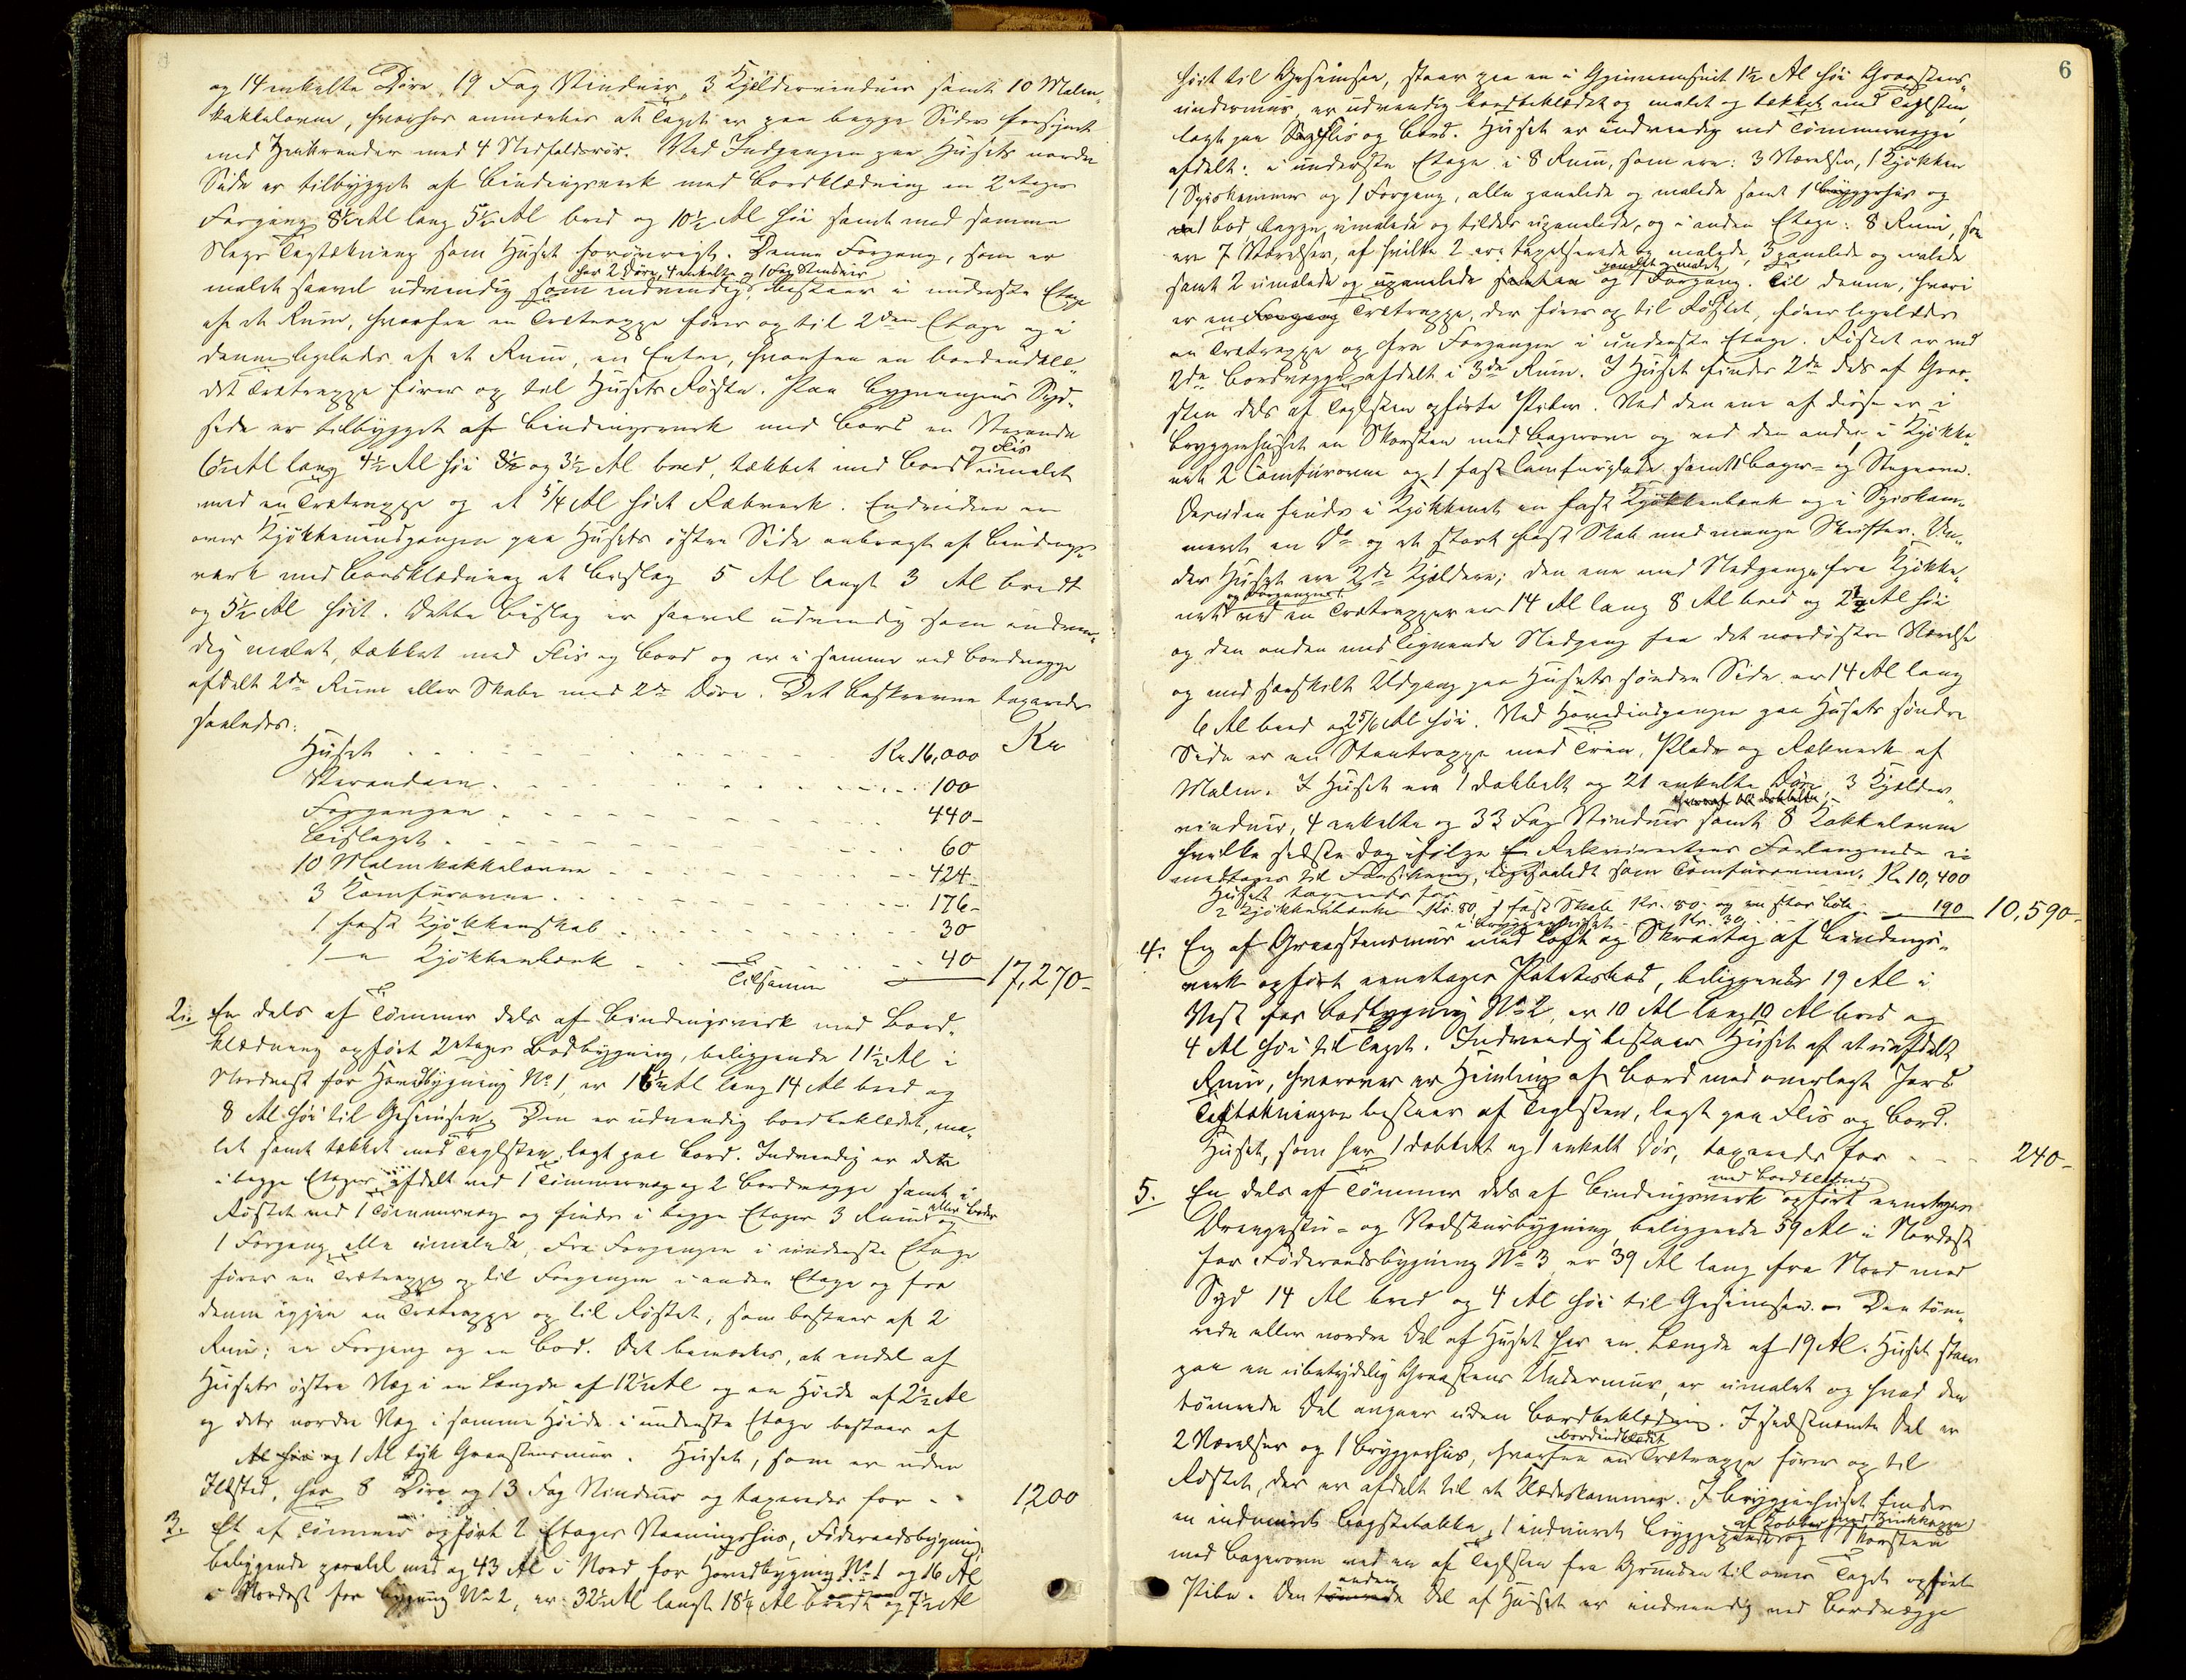 og 14 enkelte Døre, 19 Fag Vinduer, 3 Kjeldervinduer samt 10 Malm„
kakkelovne, hvorhos anmærkes at Taget er paa begge Sider forsynet
med Zinkrender med 4 Nedfaldsrør. Ved Indgangen paa Husets nordre
Side er tilbygget af Bindingsverk med Bordklædning en 2 etages
Forgang 8½ Al lang 5½ Al bred og 10½ Al høi samt med samme
Slags Tagtækning som Huset forøvrigt. Denne Forgang, som er
har 2 Døre, 4 enkelte og 1 Fag Vinduer
malet saavel udvendig som indvendig, bestaar i underste Etage
af et Rum, hvorfra en Trætrappe fører op til 2den Etage og i
denne ligeledes af et Rum, en Entre, hvorfra en bordindklæ„
det Trætrappe fører op til Husets Røste. Paa Bygningens Syd„
side er tilbygget af Bindingsverk med Bord en Veranda
og Flis
6½ Al lang 4½ Al høi og 3½ Al bred, tækket med Bord umalet
med en Trætrappe og et 5/4 Al høit Rækverk. Endvidere er
over Kjøkkenindgangen paa Husets østre Side anbragt af Bindings„
verk med Bordklædning et Bislag 5 Al langt 3 Al bredt
og 5½ Al høit. Dette Bislag er saavel udvendig som indven„
dig malet, tækket med Flis og Bord og er i samme ved Bordvægge
afdelt 2de Rum eller Skabe med 2de Døre. Det beskrevne taxeredes
saaledes:
Huset Kr. 16,000 Kr
Verandaen 100
Forgangen 440-
Bislaget 60
10 Malmkakkelovne 424-
3 Komfurovne 176-
1 fast Kjøkkenskab 30
1 — Kjøkkenbænk 40
Tilsammen 17,270-
2. En dels af Tømmer dels af Bindingsverk med Bord„
klædning opført 2 etages Bodbygning, beliggende 11½ Al i
Nordvest for Hovedbygning No 1, er 16½ Al lang 14 Al bred og
8 Al høi til Gesimsen. Den er udvendig bordbeklædet, ma„
let samt tækket med Teglsten, lagt paa Bord. Indvendig er dette
i begge Etager afdelt ved 1 Tømmervæg og 2 Bordvægge samt i
eller Boder
Røstet ved 1 Tømmervæg og findes i begge Etager 3 Rum og
1 Forgang, alle umalede. Fra Forgangen i underste Etage
fører en Trætrappe op til Forgangen i anden Etage og fra
denne igjen en Trætrappe op til Røstet, som bestaar af 2
Rum: en Forgang og en Bod. Det bemærkes, at endel af
Husets østre Væg i en Længde af 12½ Al og en Høide af 2½ Al
og dets nordre Væg i samme Høide i underste Etage bestaar af
Al høi og 1 Al tyk Graastensmur. Huset, som er uden
Ildsted, har 8 Døre og 13 Fag Vinduer og taxeredes for 1,200
3. Et af Tømmer opført 2 Etages Vaaningshus, Føderaadsbygning,
beliggende paralel med og 43 Al i Nord for Hovedbygning No 1 og 16 Al
i Nordost for Bygning No 2, er 32½ Al langt 18¼ Al bredt og 7½ Al
6
høit til Gesimsen, staar paa en i Gjennemsnit 1½ Al høi Graastens„
undermur, er udvendig bordbeklædet og malet og tækket med Teglsten,
lagt paa Flis og Bord. Huset er indvendig ved Tømmervægge
afdelt: i underste Etage i 8 Rum, som ere: 3 Værelser, 1 Kjøkken
1 Spiskammer og 1 Forgang, alle panelede og malede samt 1 Bryggerhus og
ved Bod begge umalede og tildels upanelede, og i anden Etage: 8 Rum, som
er 7 Værelser, af hvilke 2 ere tapetserede og malede, 3 panelede og malede
panelet og malet
samt 2 umalede og upanelede og 1 Forgang. Til denne, hvori
er en Forgang Trætrappe, der fører op til Røstet, fører ligeledes
en Trætrappe op fra Forgangen i underste Etage. Røstet er ved
2de Bordvægge afdelt i 3de Rum. I Huset findes 2de dels af Graa„
sten dels af Teglsten opførte Piber. Ved den ene af disse er i
Bryggerhuset en Skorsten med Bagerovn og ved den anden i Kjøkke„
net 2 Comfurovne og 1 fast Comfurplade samt 1 Bager- og Stegeovn.
Desuden findes i Kjøkkenet en fast Kjøkkenbænk og i Spiskam„
meret en Do og et stort fast Skab med mange Skuffer. Un„
der Huset ere 2de Kjeldere; den ene med Nedgange fra Kjøkke„
og Forgangen
net ved en Trætrappe er 14 Al lang 8 Al bred og 2½ Al høi
og den anden med lignende Nedgang fra det nordøstre Værelse
og med særskilt Udgang paa Husets søndre Side er 14 Al lang
6 Al bred og 2 5/6 Al høi. Ved Hovedindgangen paa Husets søndre
Side er en Stentrappe med Trin, Plade og Rækverk af
Malm. I Huset ere 1 dobbelt og 21 enkelte Døre, 3 Kjelder„
vinduer, 4 enkelte og 33 Fag Vinduer samt 8 Kakkelovne
hvilke sidste dog ifølge Rekvirentens Forlangende ei
medtages til Forsikring, ligesaalidt som Comfurovnene. Kr. 10,400
Huset taxeredes for
2 Kjøkkenbænke Kr. 80, 1 fast Skab Kr. 80 og en stor 190 10,590-
i Bryggerhuset Kr. 30
4. En af Graastensmur med Loft og Skraatag af Bindings„
verk opført eenetages Potetesbod, beliggende 19 Al i
Vest for Bodbygning No 2, er 10 Al lang 10 Al bred og
4 Al høi til Taget. Indvendig bestaar Huset af et uafdelt
Rum, hvorover er Himling af Bord med overlagt Jord.
Tagtækningen bestaar af Teglsten, lagt paa Flis og Bord.
Huset, som har 1 dobbelt og 1 enkelt Dør, taxeredes for 240-
med Bordklædning
5. En dels af Tømmer dels af Bindingsverk opført eenetages
Drengestu- og Vedskurbygning, beliggende 59 Al i Nordost
for Føderaadsbygning No 3, er 39 Al lang fra Nord mod
Syd 14 Al bred og 4 Al høi til Gesimsen. Den tøm„
rede eller nordre Del af Huset har en Længde af 19 Al. Huset staar
paa en ubetydelig Graastens Undermur, er umalet og hvad den
tømrede Del angaar uden Bordbeklædning. I sidstnævnte Del er
bordindklædt
2 Værelser og 1 Bryggerhus, hvorfra en Trætrappe fører op til
Røstet, der er afdelt til et Klædeskammer. I Bryggerhuset findes
af Kobber med Zinkkappe
en indmuret Bagstetakke, 1 indmuret Bryggepande og 1 Skorsten
med Bagerovn ved en af Teglsten fra Grunden til over Taget opført
anden
Pibe. Den tømrede Del af Huset er indvendig ved Bordvægge